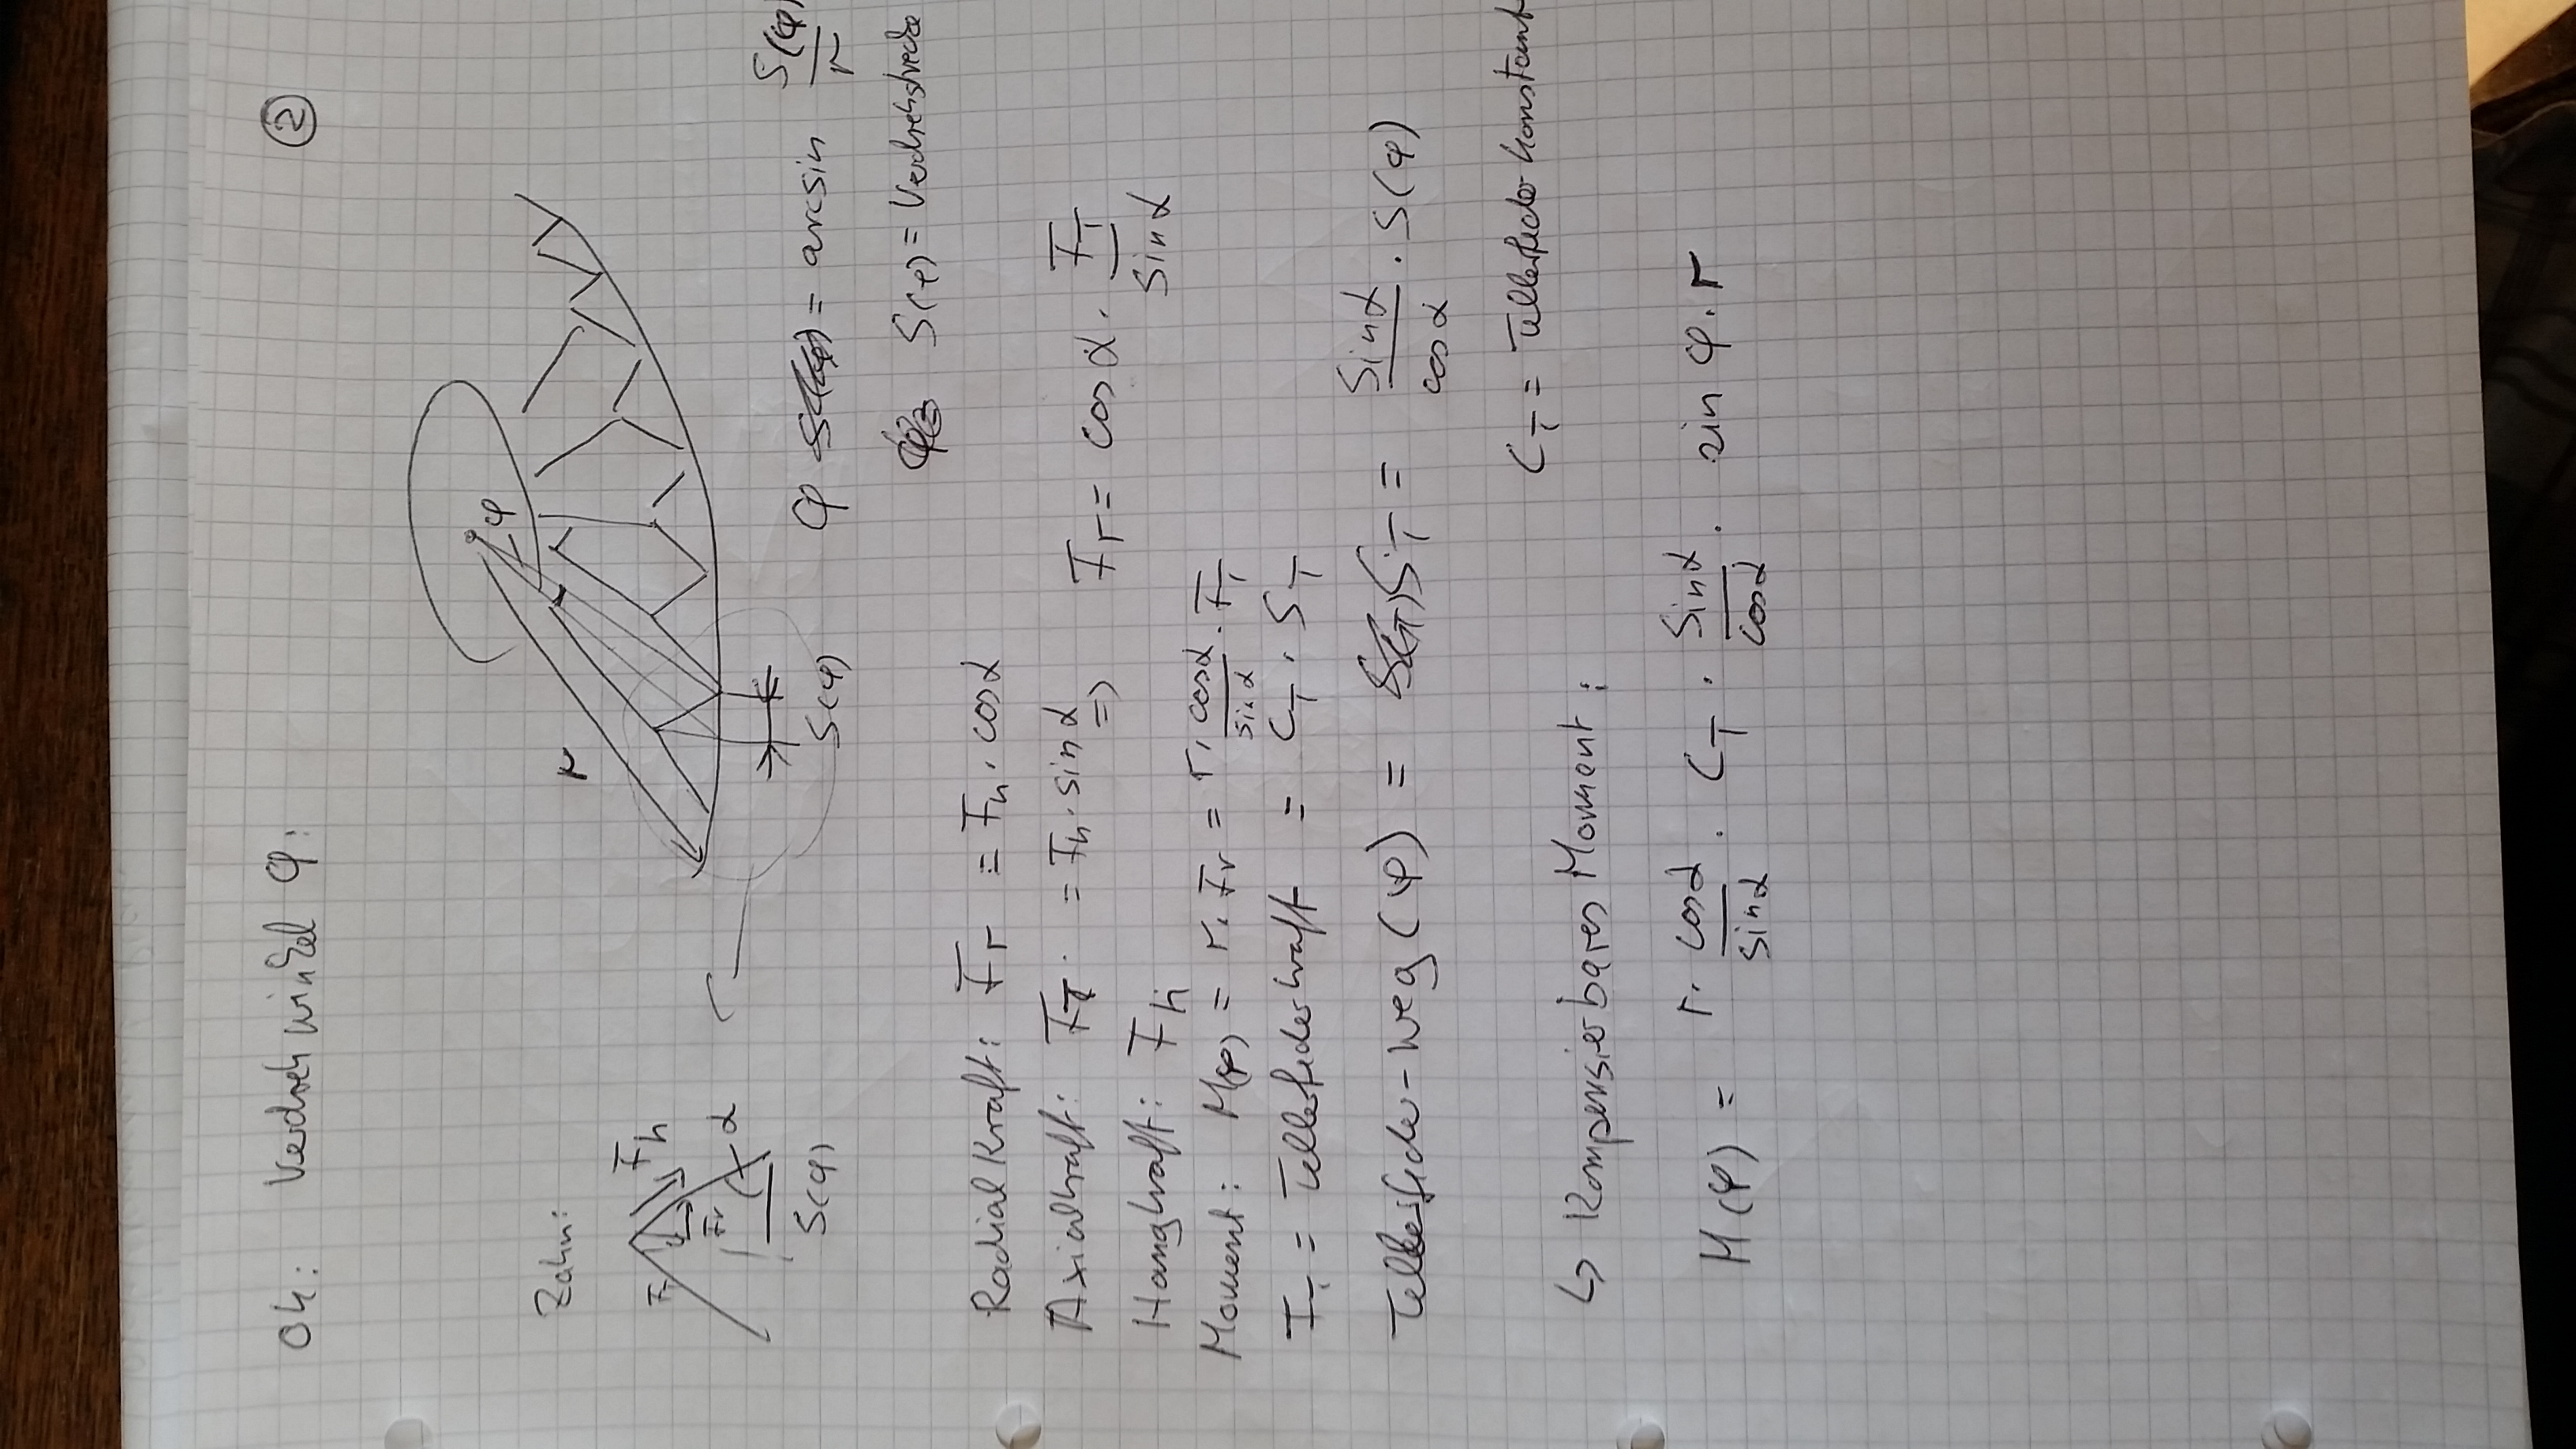 ②
Oh: Verdrehwinkel φ:
φ
r
Zahn:
Fh
Fr
α
S(φ)
S(φ)
φ = arcsin S(φ)/r
S(φ) = Verdrehstrecke
Radialkraft: Fr = Fh · cosα
Axialkraft: FT = Fh · sinα => Fr = cosα · FT/sinα
Hangkraft: Fh
Moment: M(φ) = r · Fr = r · cosα/sinα · FT
FT = Tellerfederkraft = CT · ST
Tellerfeder-weg(φ) = ST = sinα/cosα · S(φ)
CT = Tellerfederkonstante
↳ Kompensierbares Moment:
M(φ) = r · cosα/sinα · CT · sinα/cosα · sin φ · r